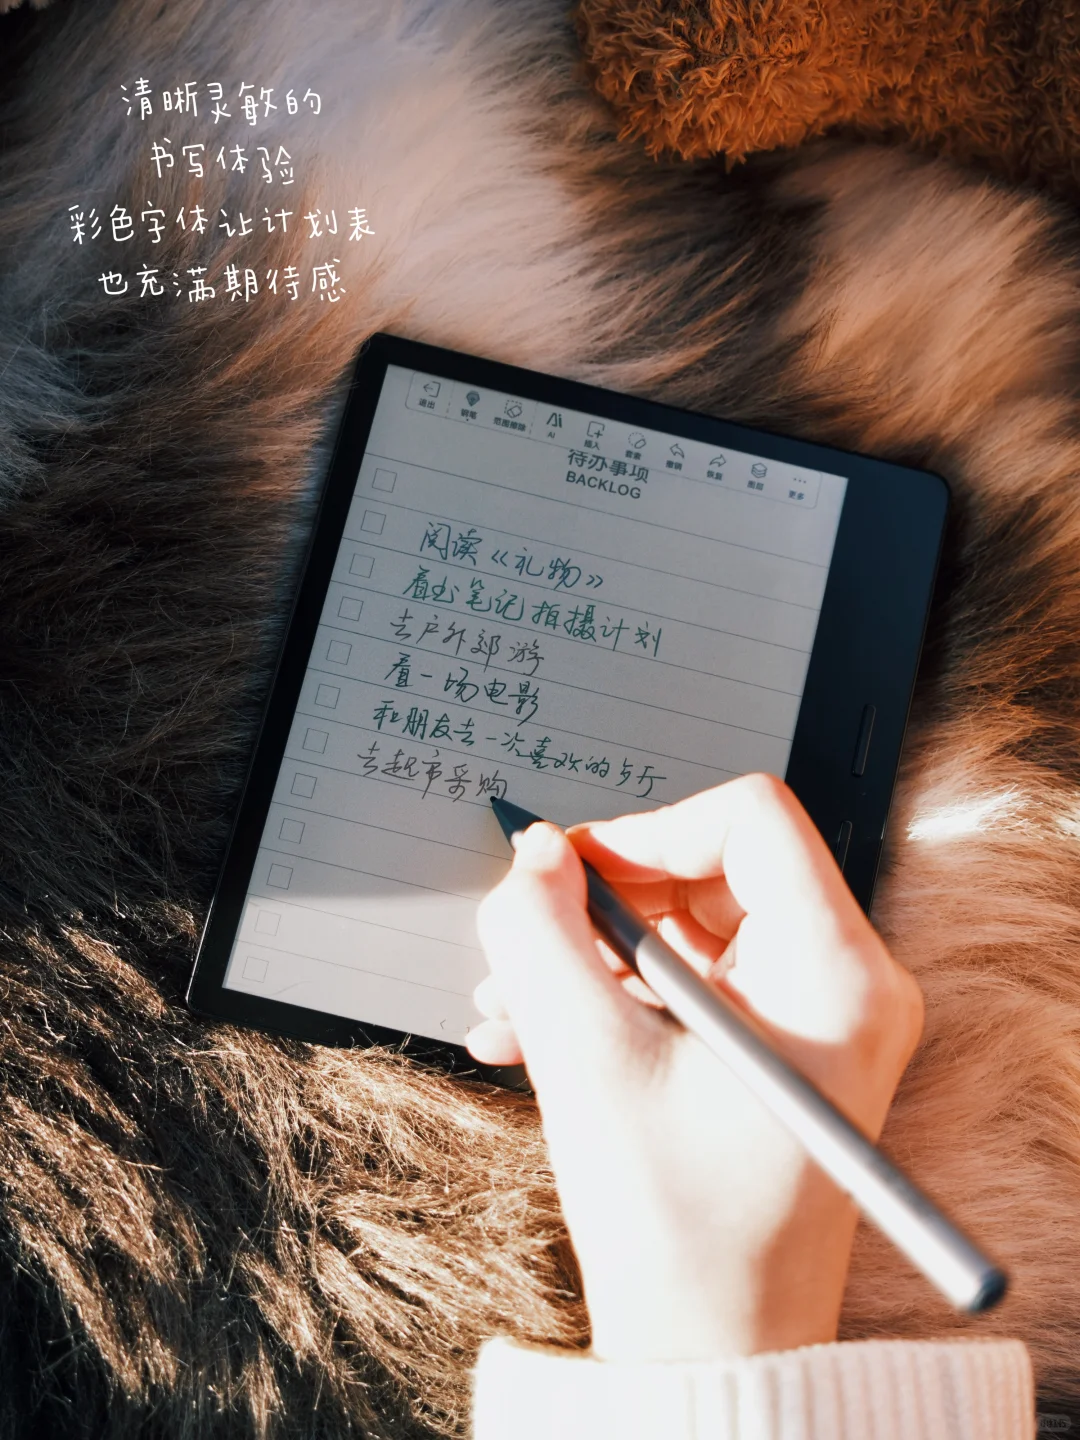 清晰灵敏的
书写体验
彩色字体让计划表
也充满期待感
退出 钢笔 范围擦除 AI AI 插入 套索 撤销 恢复 图层 更多
待办事项
BACKLOG
阅读《礼物》
看书笔记拍摄计划
去户外郊游
看一场电影
和朋友去一次喜欢的
去超市采购